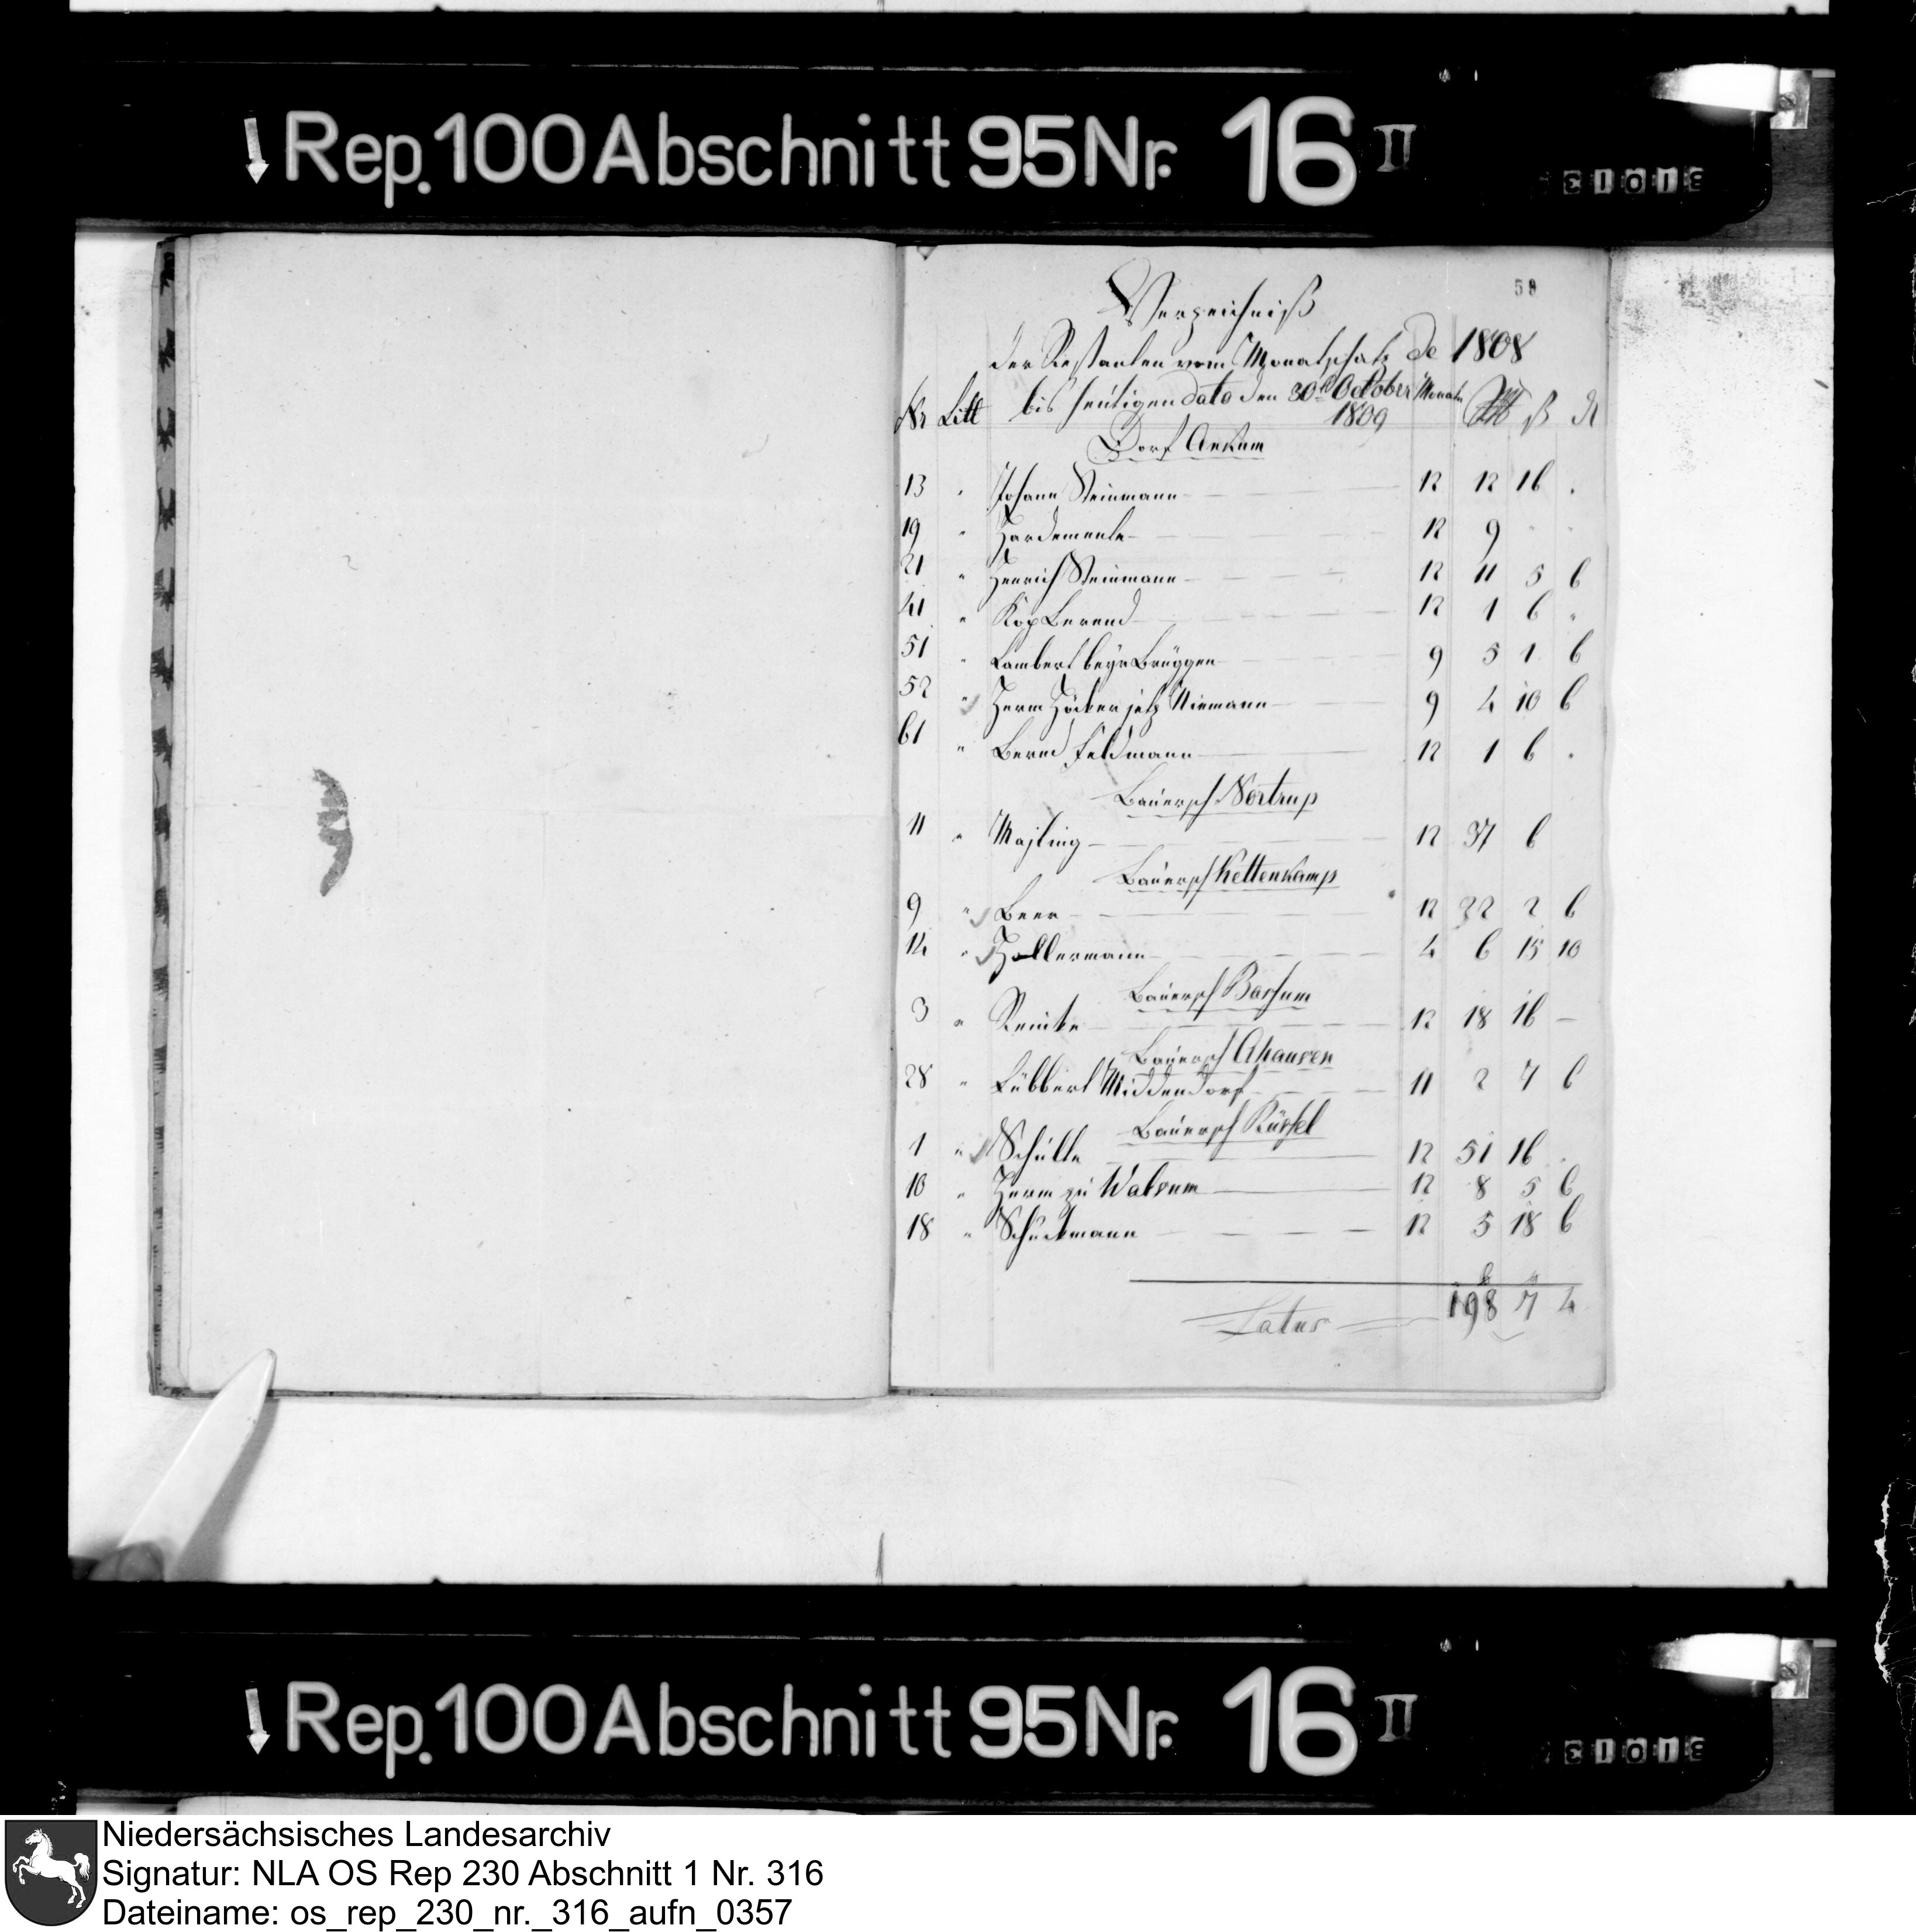 Rep. 100 Abschnitt 95 Nr. 16 II
59
Verzeichniß
der Restanten vom Monatschatz de 1808
Nr Litt bis heutigen dato den 30t October 1809 Monate ß
Dorf Ankum
13 " Johann Steinmann 12 12 16 .
19 " Hardemente 12 9 " "
21 " Henrich Steinmann 12 11 5 6
41 " Kop Berend 12 1 6 "
51 " Lambert beÿr Brüggen 9 5 1 6
52 " Herm Höcker jetz Niemann 9 4 10 6
61 " Bernd Feldmann 12 1 6 .
Bauersch Nortrup
11 " 12 37 6
Bauersch Kettenkamp
9 " Beer 12 32 2 6
14 " Hollermann 4 6 15 10
Bauersch Basum
3 " Reinke 12 18 16 —
Bauersch Ahausen
28 " Lübbert Middendorf 11 2 7 6
Bauersch Rüssel
1 " Schulte 12 51 16 .
10 " Herm zu Walsum 12 8 5 6
18 " Schuckmann 12 5 18 6
Latus 198 7 4
Rep. 100 Abschnitt 95 Nr. 16 II
Niedersächsisches Landesarchiv
Signatur: NLA OS Rep 230 Abschnitt 1 Nr. 316
Dateiname: os_rep_230_nr._316_aufn_0357